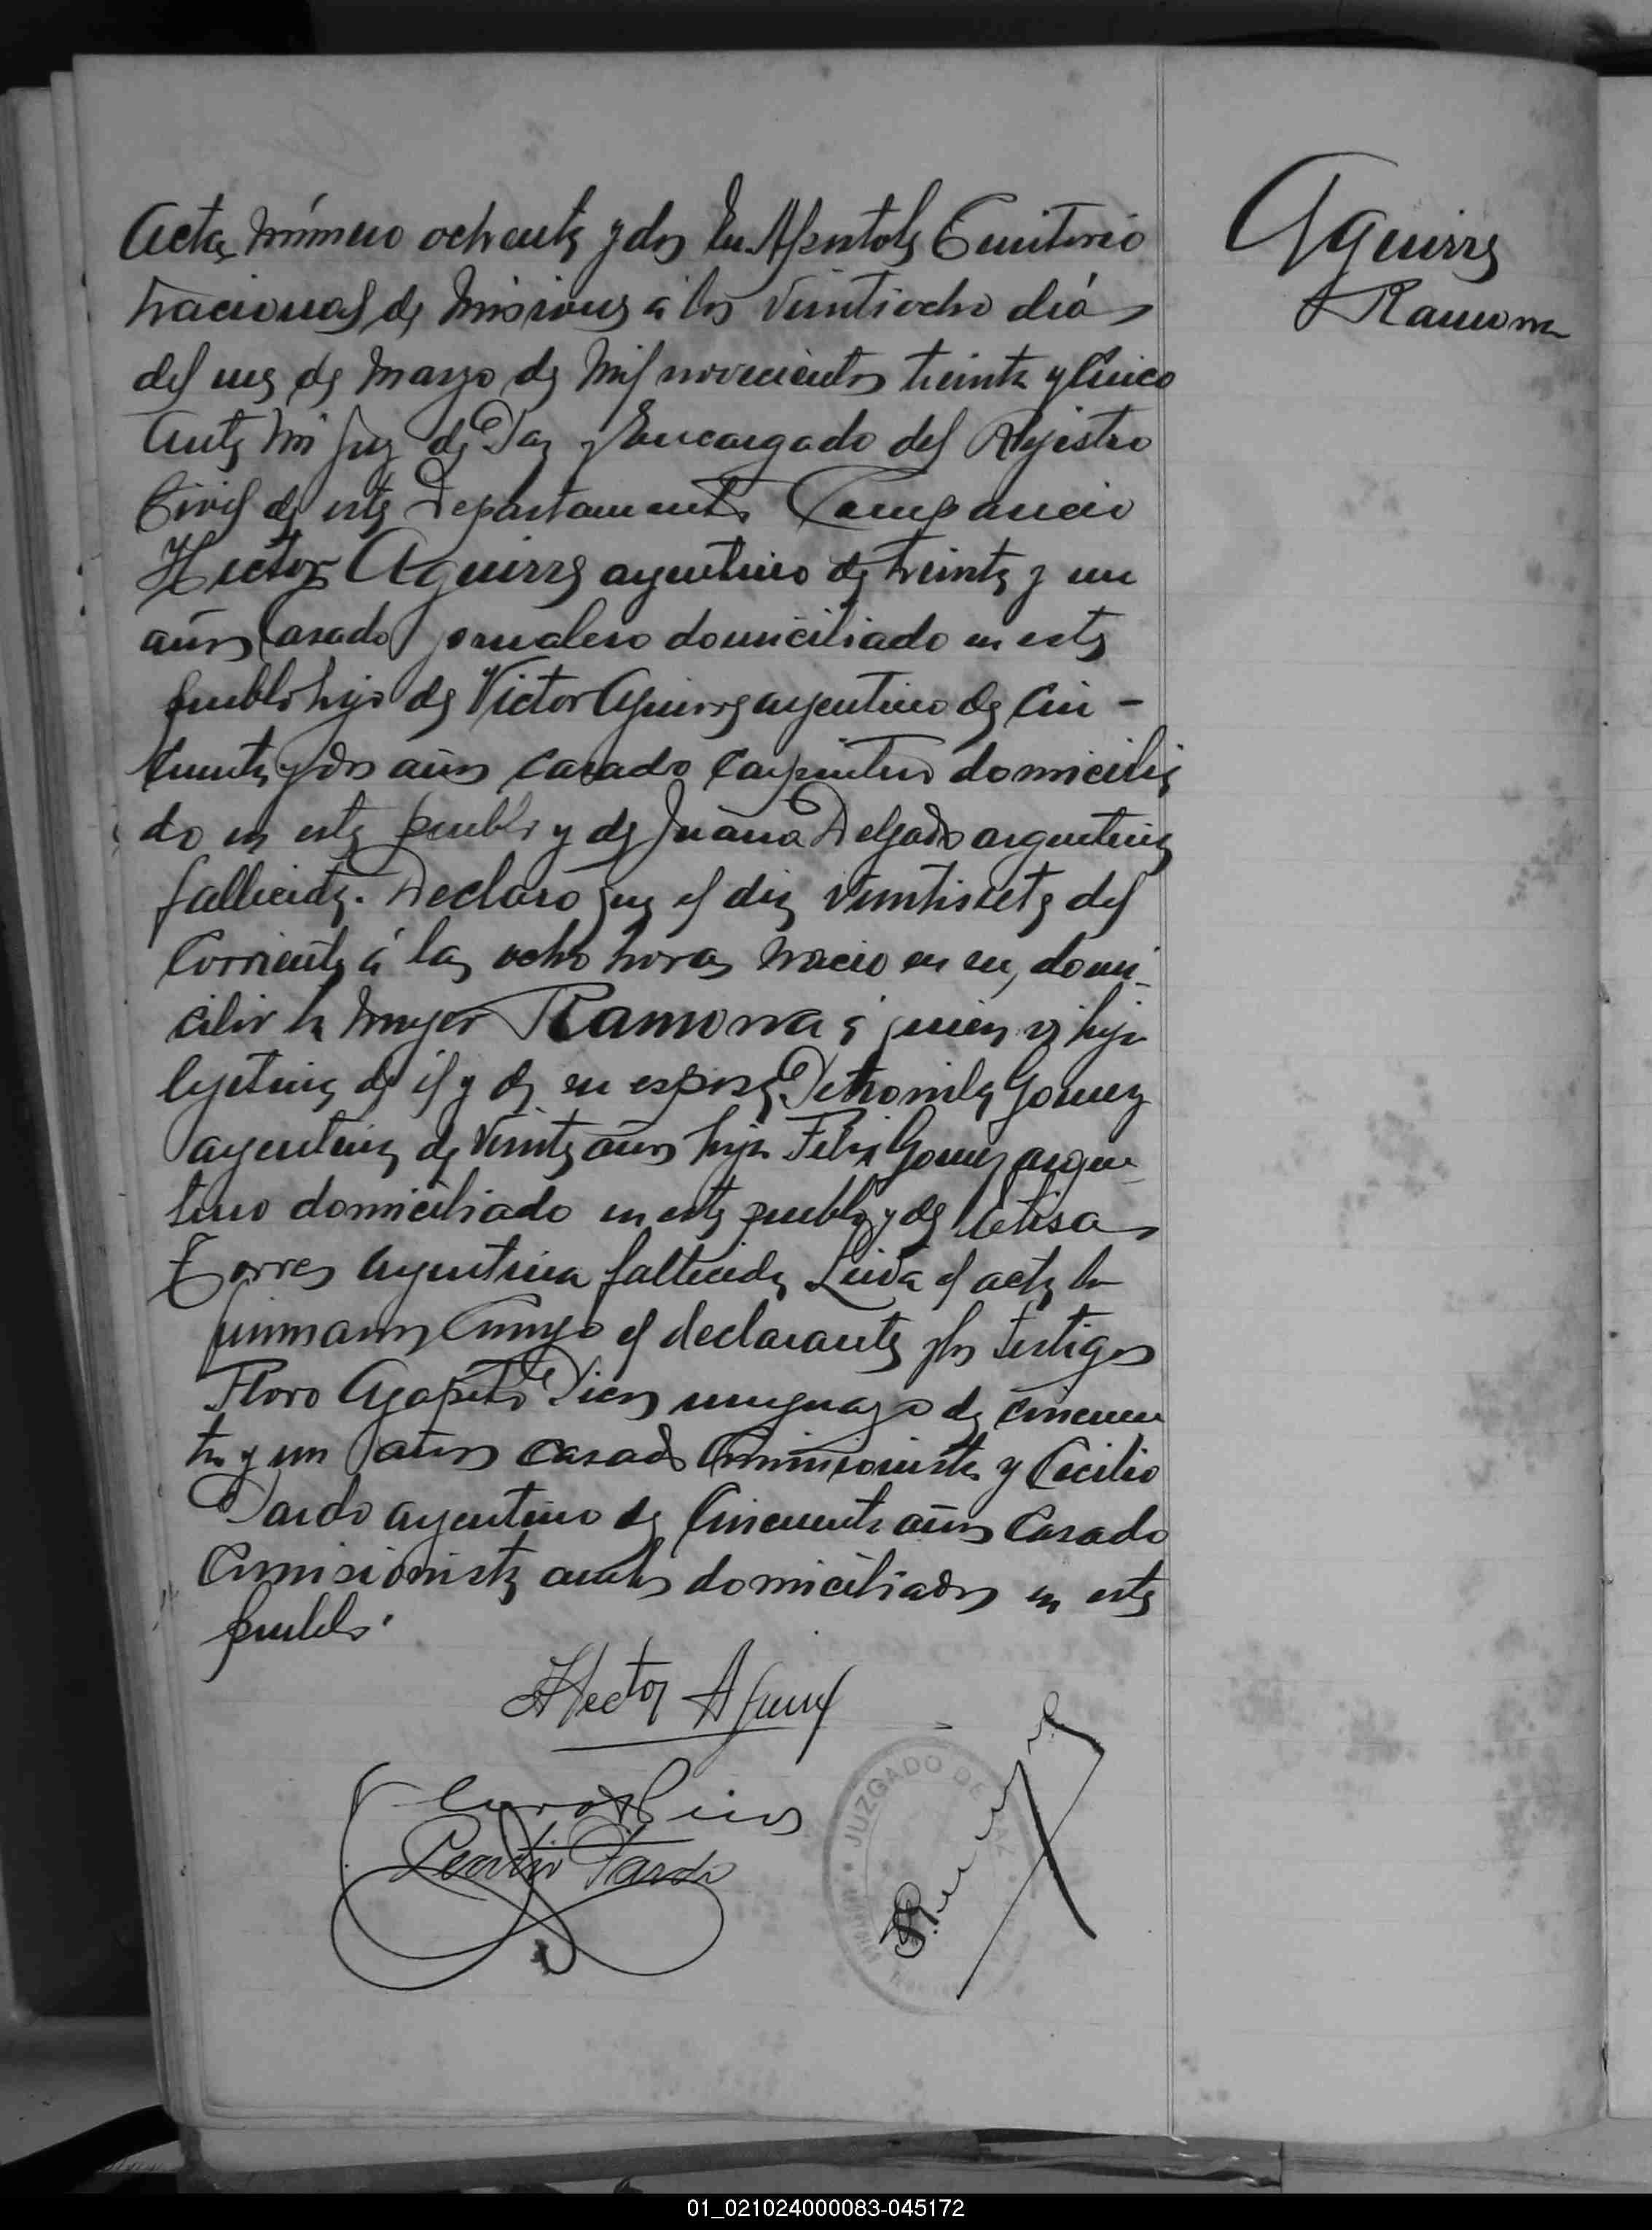 Acta número ochenta y dos En Apostoles Territorio
Nacional de Misiones á los veintiocho días
del mes de Marzo de Mil novecientos treinta y Cinco
Ante Mi Juez de Paz y Encargado del Rejistro
Civil de este Departamento Compareció
Hector Aguirre argentino de treinta y un
años Casado jornalero domiciliado en este
pueblo hijo de Victor Aguirre argentino de Cin-
cuenta y dos años casado carpintero domicilia
do en este pueblo y de Juana Delgado argentina
fallecida. Declaró que el dia veintisiete del
Corriente á las ocho horas nacio en su domi-
cilio la mujer Ramona á quien es hija
lejitima de él y de su esposa Petronila Gomez
argentina de veinte años hija Felix Gomez argen-
tino domiciliado en este pueblo y de
Torres argentina fallecida Leida el acta la
firmaron Conmigo el declarante y los testigos
Floro Agapito Pios uruguayo de cincuen
ta y un años casado Comisionista y Cecilio
Pardo argentino de Cincuenta años Casado
Comisionista ambos domiciliados en este
pueblo.
Aguirre
Ramona
Hector Aguirre
Pardo
JUZGADO DE
01_021024000083-045172